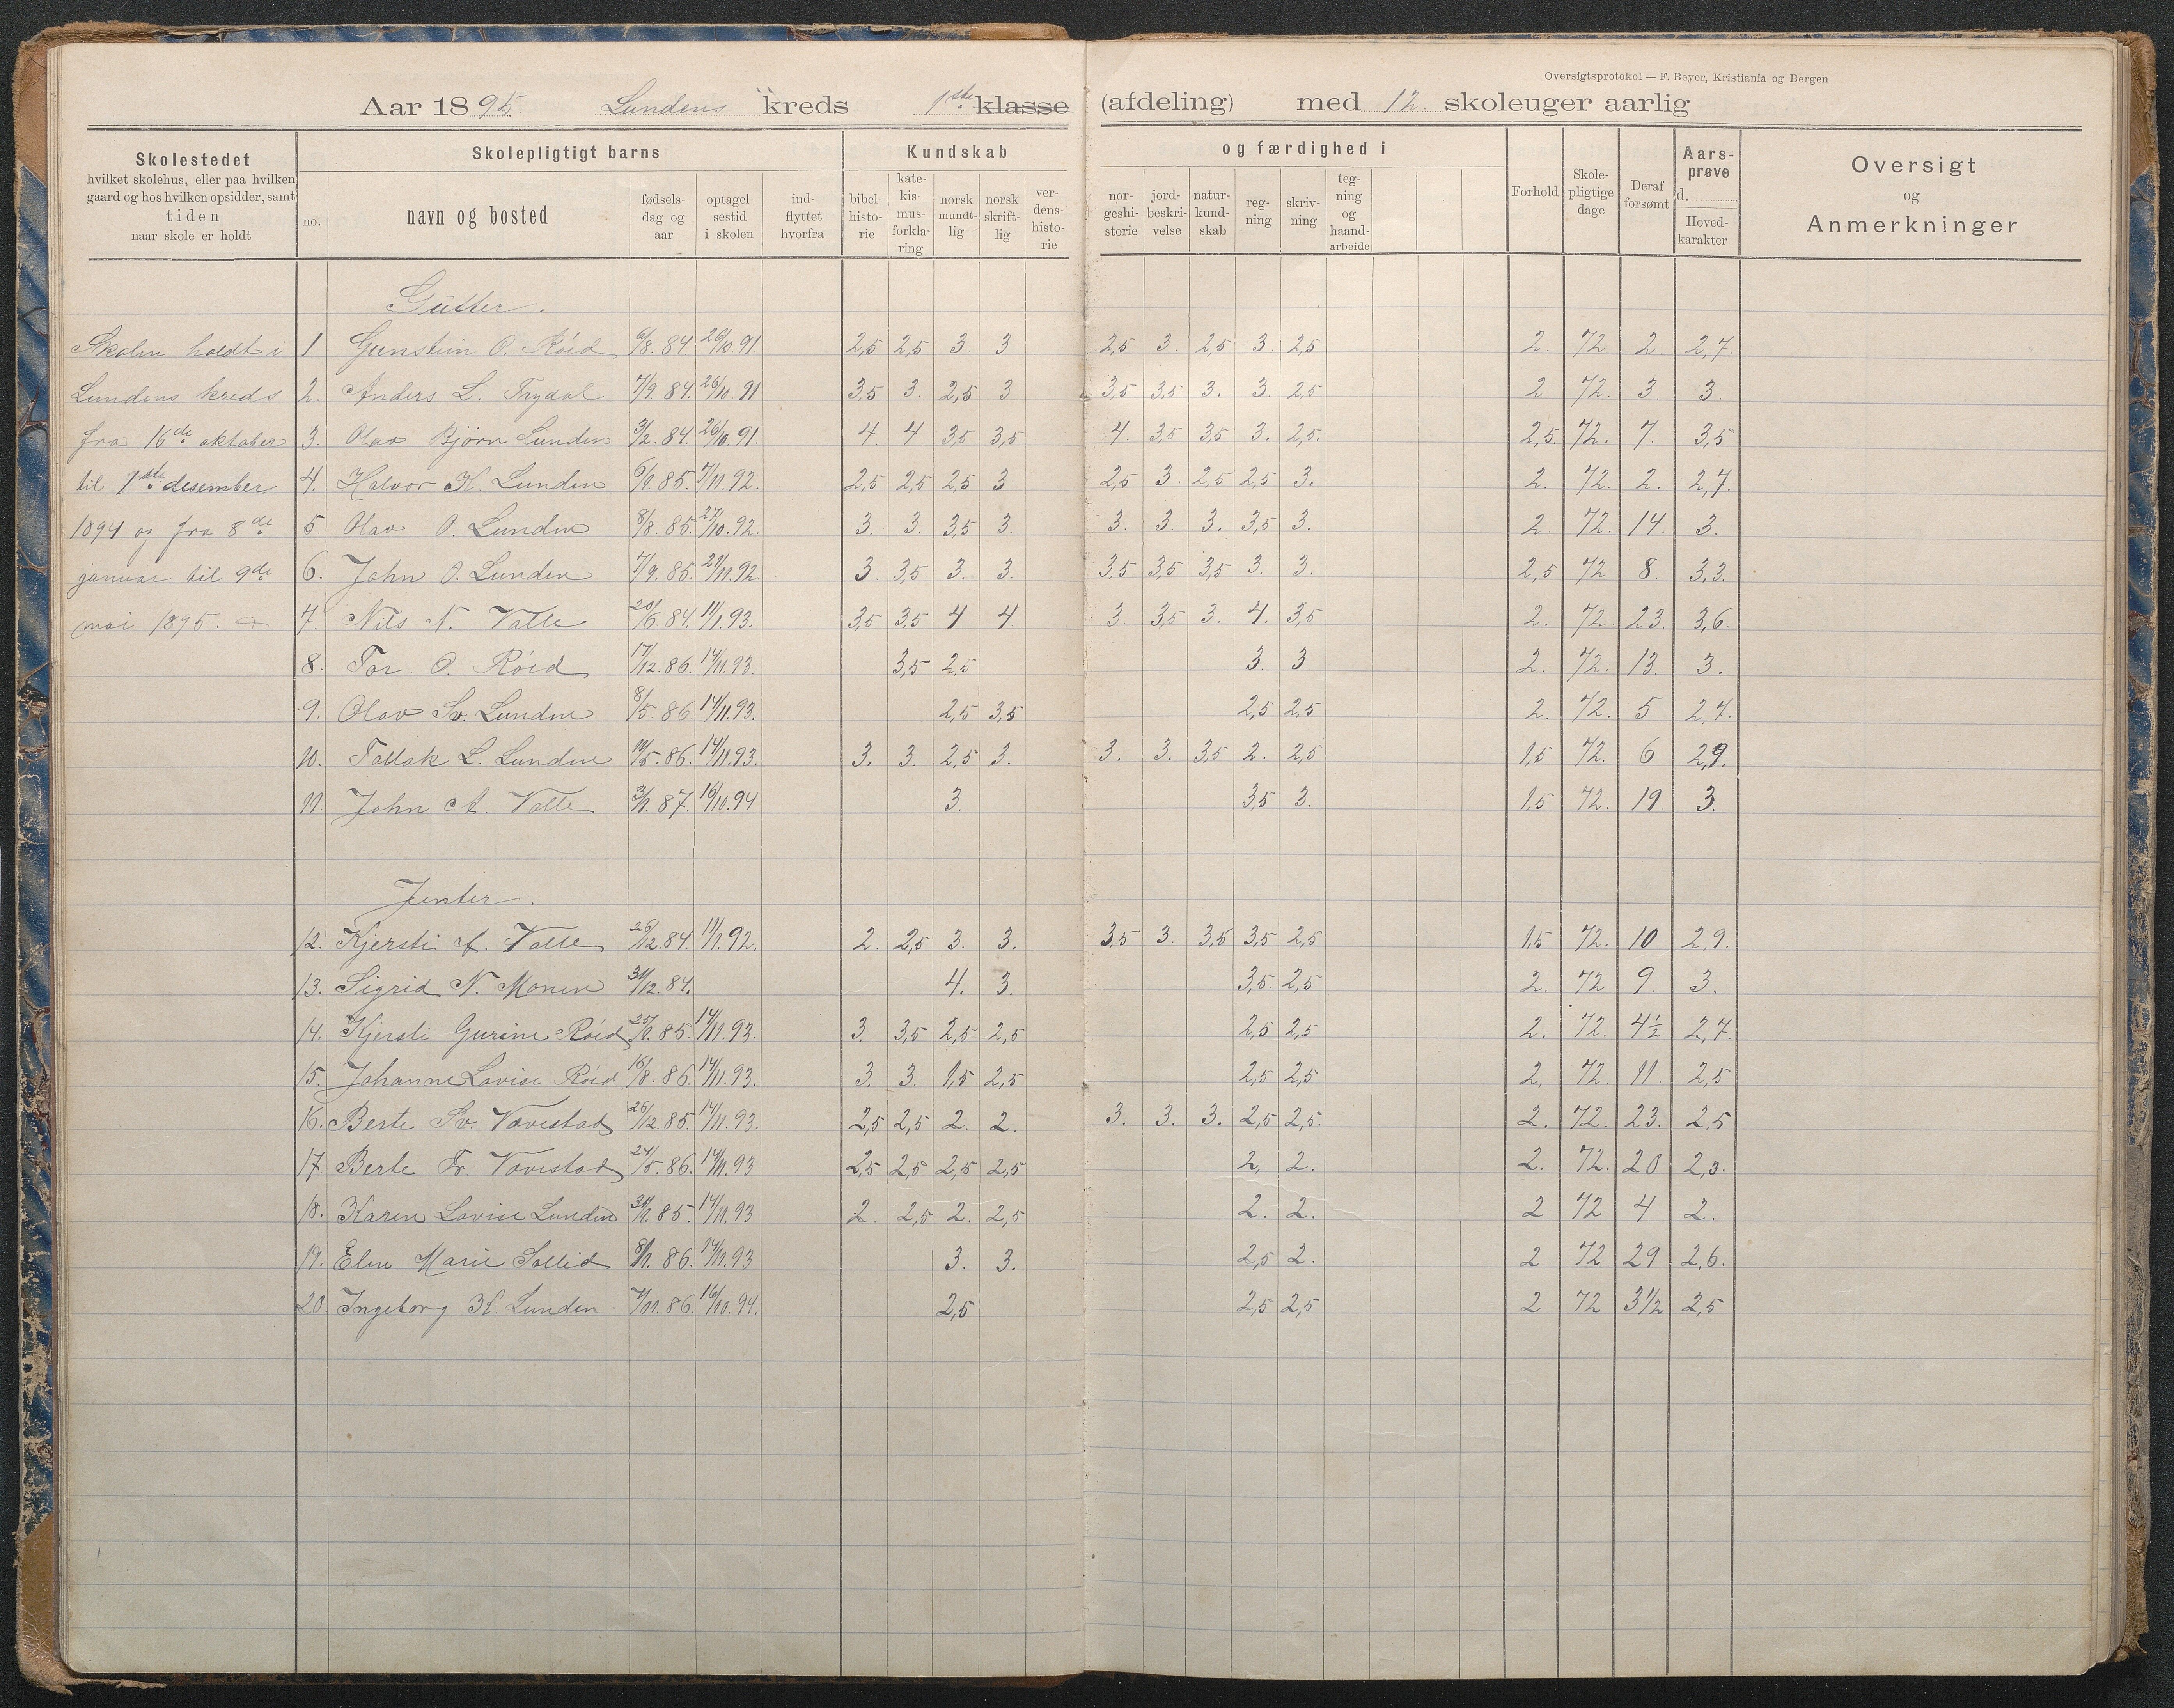 Oversigtsprotokol — F. Beyer, Kristiania og Bergen
Aar 1895. Lundens kreds 1ste klasse (afdeling) med 12 skoleuger aarlig
Skolestedet
hvilket skolehus, eller paa hvilken
gaard og hos hvilken opsidder, samt
tiden
naar skole er holdt
Skolepligtigt barns
no.
navn og bosted
fødsels-
dag og
aar
optagel-
sestid
i skolen
ind-
flyttet
hvorfra
Kundskab
bibel-
histo-
rie
kate-
kis-
mus-
forkla-
ring
norsk
mundt-
lig
norsk
skrift-
lig
ver-
dens-
histo-
rie
og færdighed i
nor-
geshi-
storie
jord-
beskri-
velse
natur-
kund-
skab
reg-
ning
skriv-
ning
teg-
ning
og
haand-
arbeide
Forhold
Skole-
pligtige
dage
Deraf
forsømt
Aars-
prøve
d.
Hoved-
karakter
Oversigt
og
Anmerkninger
Gutter.
Skolen holdt i 1 Gunstein O. Róed 6/8. 84 26/10. 91. 2,5 2,5 3. 3 2,5 3. 2,5 3. 2,5 2. 72 2. 2,7.
Lundens kreds 2. Anders L. Trydal 7/9. 84. 26/10. 91 3,5 3. 2,5 3 3,5 3,5 3. 3. 2,5 2 72. 3. 3.
fra 16de oktober 3. Olav Bjørn Lunden 3/2. 84. 26/10. 91. 4 4 3,5 3,5 4. 3,5 3,5 3. 2,5. 2,5. 72. 7. 3,5
til 1ste desember 4. Halvor K. Lunden 6/1. 85. 7/11. 92. 2,5 2,5 2,5 3 2,5 3. 2,5 2,5 3. 2. 72. 2. 2,7.
1894 og fra 8de 5. Olav O. Lunden 8/8. 85. 27/10. 92. 3. 3. 3,5 3. 3. 3. 3. 3,5 3. 2. 72. 14. 3.
januar til 9de 6. John O. Lunden 7/9. 85. 21/11. 92 3. 3,5 3. 3. 3,5 3,5 3,5 3. 3. 2,5 72 8 3,3.
mai 1895. 7. Nils N. Valle 20/6. 84. 11/1. 93. 3,5 3,5 4 4 3. 3,5 3. 4. 3,5 2. 72. 23. 3,6.
8. Tor O. Róed 17/12. 86. 14/11. 93. 3,5 2,5 3. 3 2. 72. 13. 3.
9. Olav Sv. Lunden 8/5. 86. 14/11. 93. 2,5 3,5 2,5 2,5 2. 72. 5 2,7.
10. Tallak L. Lunden 10/5. 86. 14/11. 93. 3. 3. 2,5 3. 3. 3. 3,5 2. 2,5 1,5 72. 6 2,9.
11. John A. Valle 3/1. 87. 16/10. 94 3. 3,5 3. 1,5 72. 19. 3.
Jenter.
12. Kjersti A. Valle 26/12. 84. 11/1. 92. 2. 2,5 3. 3. 3,5 3. 3,5 3,5 2,5 1,5 72. 10 2,9.
13. Sigrid N. Monen 31/12. 84. 4. 3. 3,5. 2,5 2. 72 9. 3.
14. Kjersti Gurine Róed 25/1. 85. 14/11. 93. 3. 3,5 2,5 2,5 2,5 2,5 2. 72. 4½ 2,7.
15. Johanne Lovise Róed 16/8. 86. 14/11. 93. 3. 3. 1,5 2,5 2,5 2,5 2. 72. 11. 2,5
16. Berte Sv. Vovestad 26/12. 85. 14/11. 93. 2,5 2,5 2. 2. 3. 3. 3. 2,5 2,5. 2. 72. 23. 2,5
17. Berte Tr. Vovestad 24/5. 86. 14/11. 93 2,5 2,5 2,5 2,5 2. 2. 2. 72. 20 2,3.
18. Karen Lovise Lunden 31/1. 85. 14/11. 93 2. 2,5 2. 2,5 2. 2. 2 72 4 2.
19. Elen Marie Sollid 8/1. 86. 14/11. 93 3. 3. 2,5 2. 2 72 29 2,6.
20. Ingeborg K. Lunden 7/11. 86. 16/10. 94. 2,5 2,5 2,5 2 72 3½ 2,5